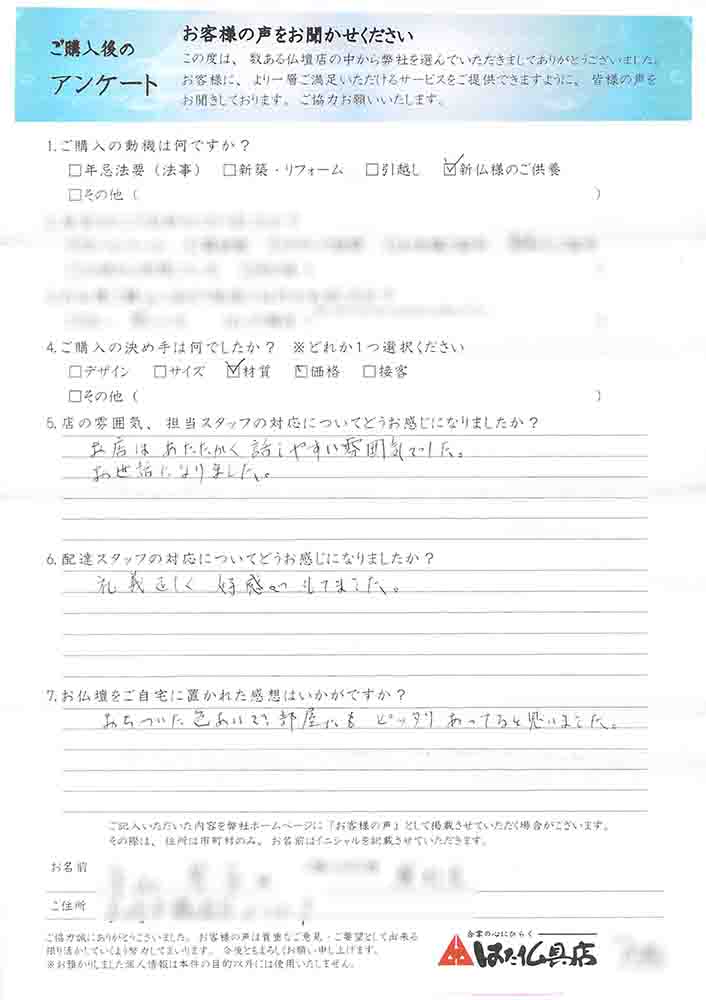 ご購入後の
アンケート
お客様の声をお聞かせください
この度は、数ある仏壇店の中から弊社を選んでいただきましてありがとうございました。
お客様に、より一層ご満足いただけるサービスをご提供できますように、皆様の声を
お聞きしております。ご協力お願いいたします。
1.ご購入の動機は何ですか?
□年忌法要(法事) □新築・リフォーム □引越し ☑新仏様のご供養
□その他( )
4.ご購入の決め手は何でしたか? ※どれか1つ選択ください
□デザイン □サイズ ☑材質 □価格 □接客
□その他( )
5.店の雰囲気、担当スタッフの対応についてどうお感じになりましたか?
お店は あたたかく 話しやすい雰囲気でした。
お世話になりました。
6.配達スタッフの対応についてどうお感じになりましたか?
礼義正しく 好感が もてました。
7.お仏壇をご自宅に置かれた感想はいかがですか?
おちついた色あいで 部屋にも ピッタリ あってると思いました。
ご記入いただいた内容を弊社ホームページに「お客様の声」として掲載させていただく場合がございます。
その際は、住所は市町村のみ、お名前はイニシャルを記載させていただきます。
お名前
ご住所
ご協力誠にありがとうございました。お客様の声は貴重なご意見・ご要望として出来る
限り活かしていくよう努力してまいります。今後ともよろしくお願い申し上げます。
※お預かりしました個人情報は本件の目的以外には使用いたしません。
合掌の心にひらく
はた仏具店